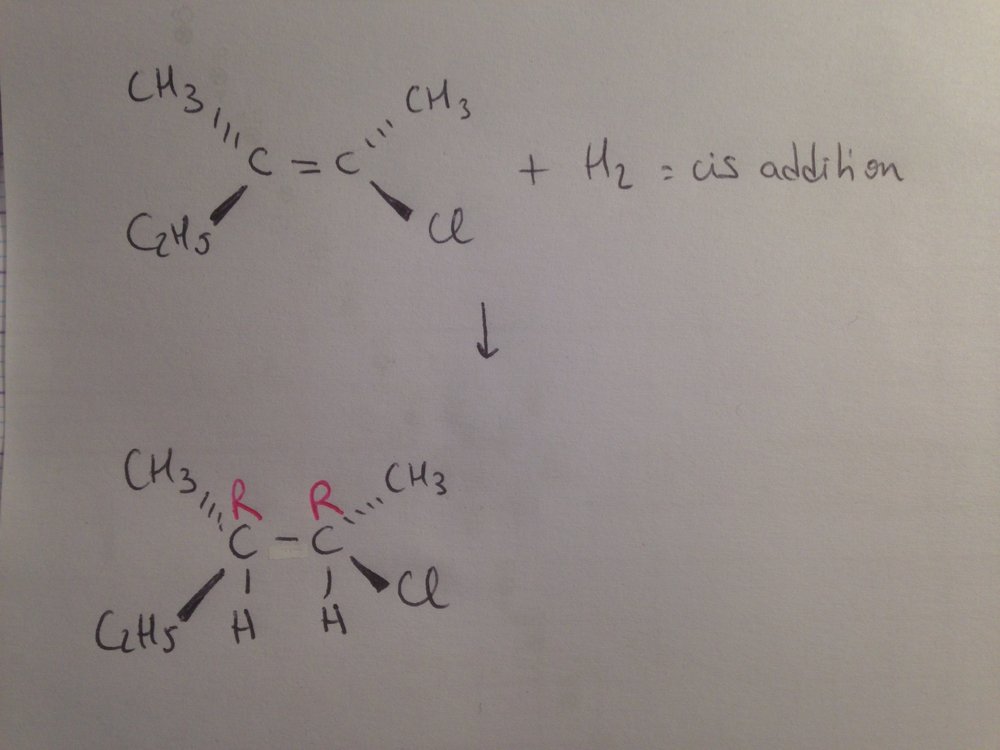 CH3 CH3
C = C + H2 = cis addition
C2H5 Cl
↓
CH3 R R CH3
C - C
C2H5 H H Cl